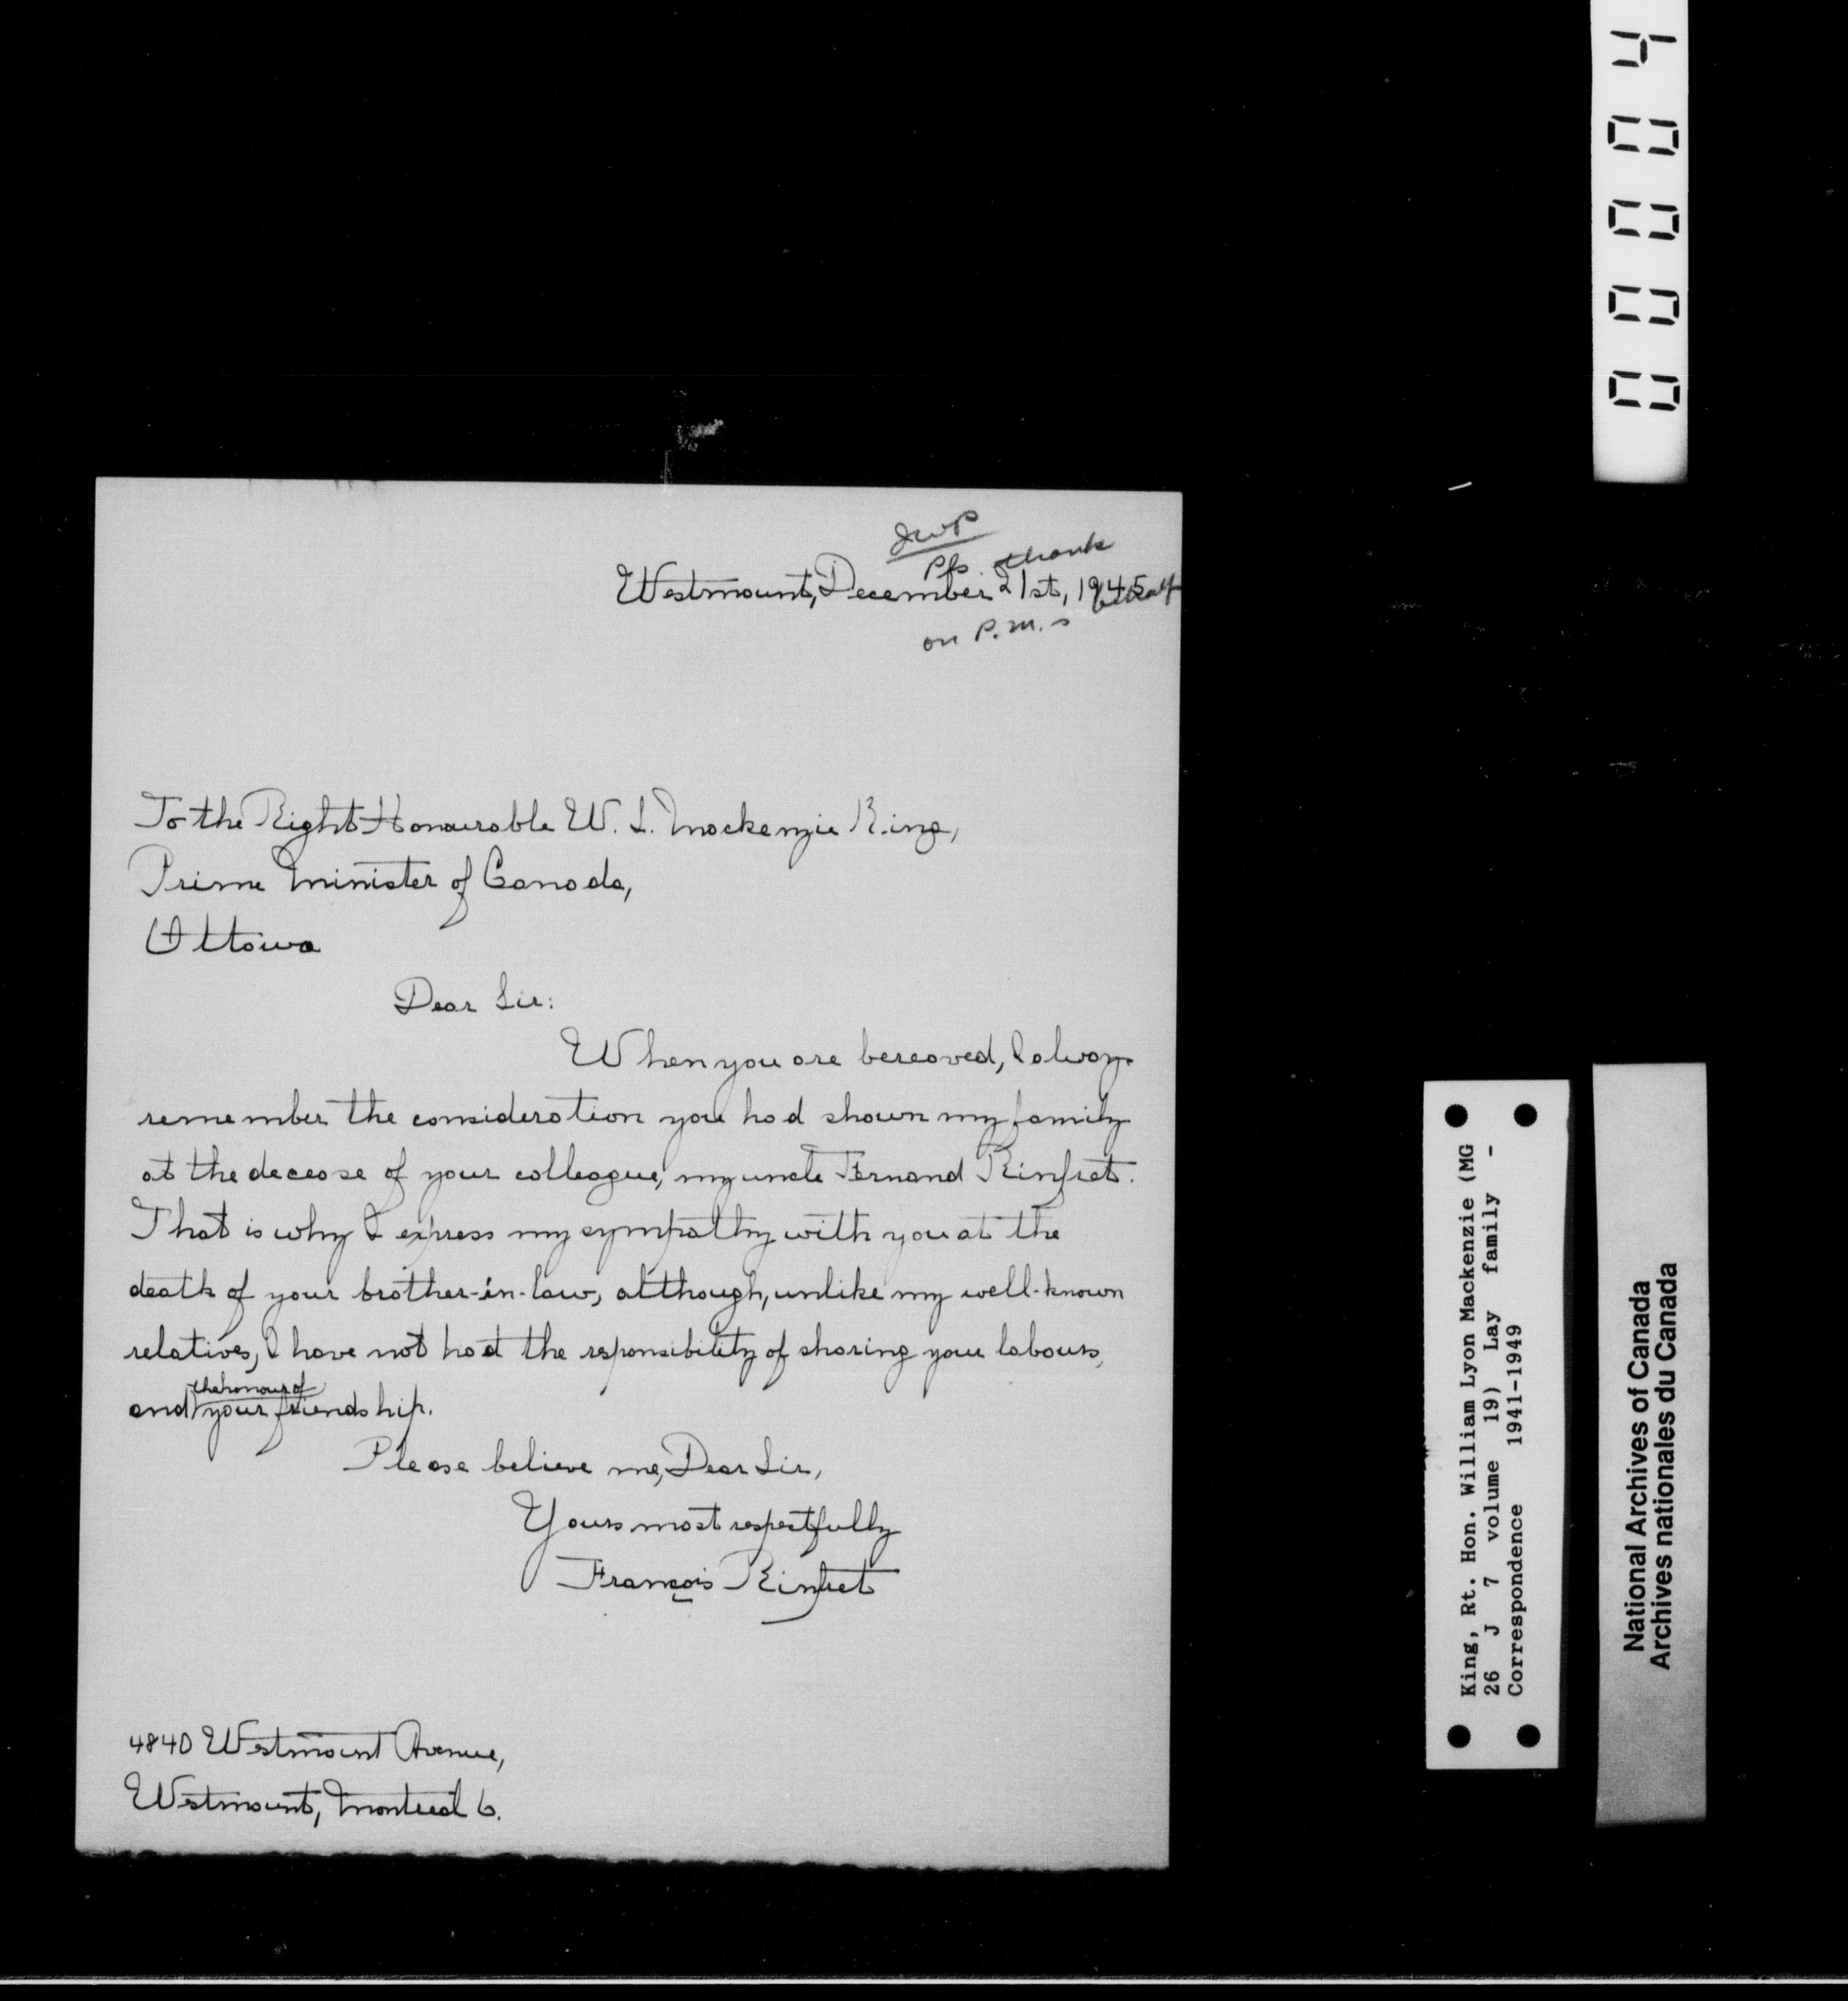 JWP
Pls. thank
Westmount, December 21st, 1945
behalf
on P.M.s
To the Right Honourable W. L. Mackenzie King,
Prime Minister of Canada,
Ottawa
Dear Sir:
When you are bereaved, I always
remember the consideration you had shown my family
at the decease of your colleague, my uncle Fernand Rinfret.
That is why I express my sympathy with you at the
death of your brother-in-law, although, unlike my well-known
relatives, I have not had the responsibility of sharing your labours,
the honour of
and your friendship.
Please believe me, Dear Sir,
Yours most respectfully
François Rinfret
4840 Westmount Avenue,
Westmount, Montreal 6.
00004
King, Rt. Hon. William Lyon Mackenzie (MG
26 J 7 volume 19) Lay family -
Correspondence 1941-1949
National Archives of Canada
Archives nationales du Canada